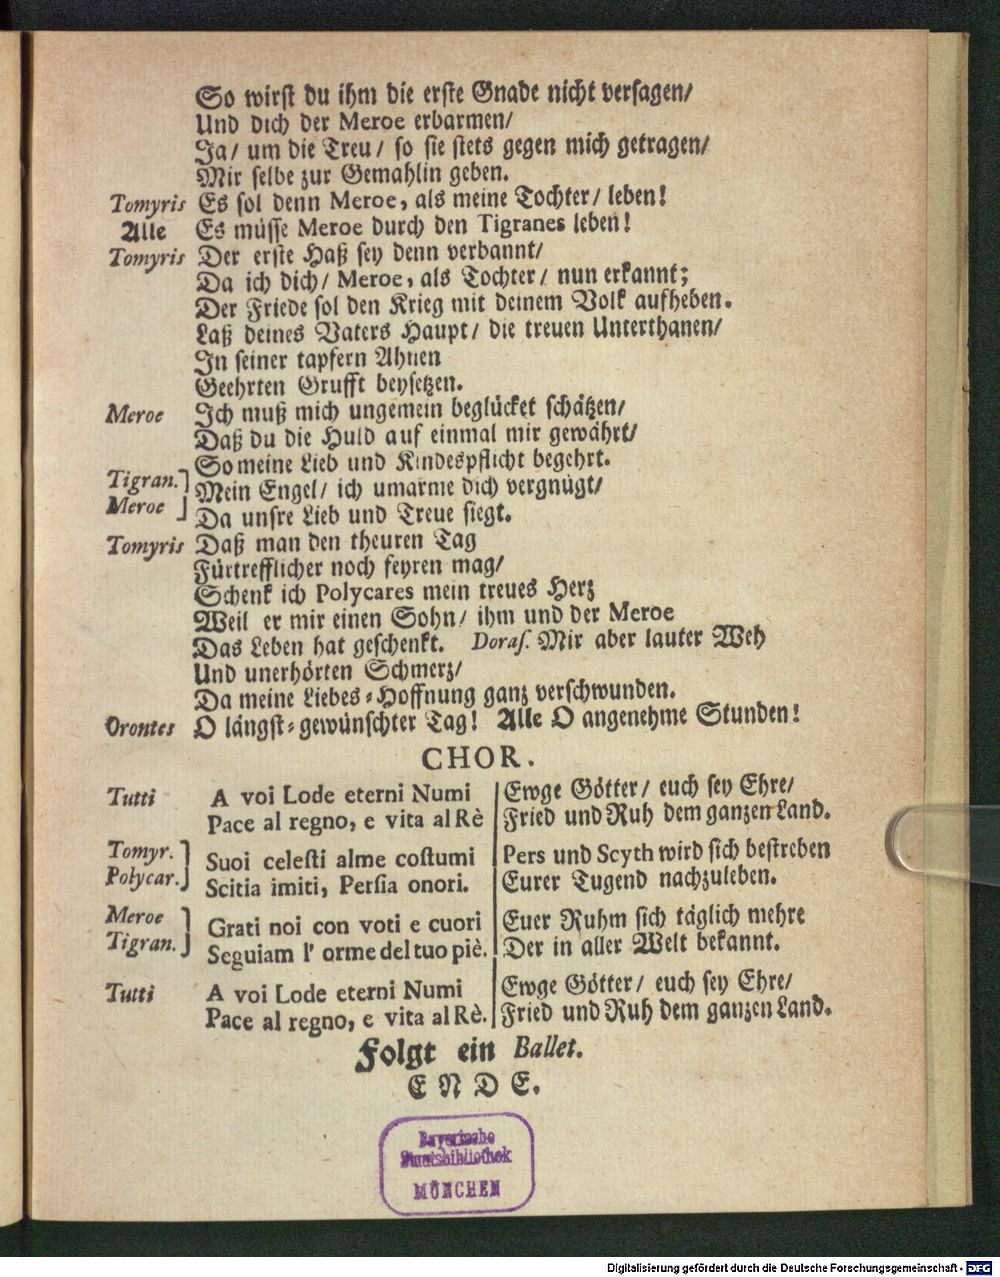 So wirst du ihm die erste Gnade nicht versagen/
Und dich der Meroe erbarmen/
Ja/ um die Treu/ so sie stets gegen mich getragen/
Mir selbe zur Gemahlin geben.
Tomyris Es sol denn Meroe, als meine Tochter/ leben!
Alle Es müsse Meroe durch den Tigranes leben!
Tomyris Der erste Haß sey denn verbannt/
Da ich dich/ Meroe, als Tochter/ nun erkannt;
Der Friede sol den Krieg mit deinem Volk aufheben.
Laß deines Vaters Haupt/ die treuen Unterthanen/
In seiner tapfern Ahnen
Geehrten Grufft beysetzen.
Meroe Ich muß mich ungemein beglücket schätzen/
Daß du die Huld auf einmal mir gewährt/
So meine Lieb und Kindespflicht begehrt.
Tigran. Mein Engel/ ich umarme dich vergnügt/
Meroe Da unsre Lieb und Treue siegt.
Tomyris Daß man den theuren Tag
Fürtrefflicher noch feyren mag/
Schenk ich Polycares mein treues Herz
Weil er mir einen Sohn/ ihm und der Meroe
Das Leben hat geschenkt. Doraſ. Mir aber lauter Weh
Und unerhörten Schmerz/
Da meine Liebes-Hoffnung ganz verschwunden.
Orontes O längst-gewünschter Tag! Alle O angenehme Stunden!
CHOR.
Tutti A voi Lode eterni Numi
Pace al regno, e vita al Rè
Tomyr. Suoi celeſti alme coſtumi
Polycar. Scitia imiti, Perſia onori.
Meroe Grati noi con voti e cuori
Tigran. Seguiam l' orme del tuo piè.
Tutti A voi Lode eterni Numi
Pace al regno, e vita al Rè.
Ewge Götter/ euch sey Ehre/
Fried und Ruh dem ganzen Land.
Pers und Scyth wird sich bestreben
Eurer Tugend nachzuleben.
Euer Ruhm sich täglich mehre
Der in aller Welt bekannt.
Ewge Götter/ euch sey Ehre/
Fried und Ruh dem ganzen Land.
Folgt ein Ballet.
ENDE.
Bayerische
Staatsbibliothek
MÜNCHEN
Digitalisierung gefördert durch die Deutsche Forschungsgemeinschaft - DFG